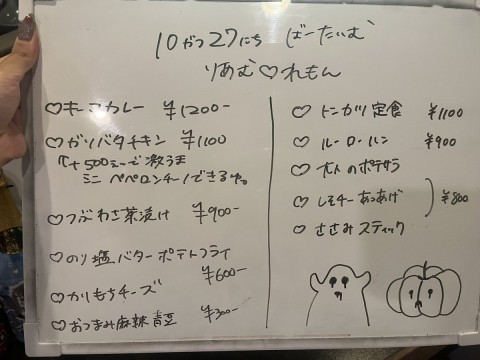 10がつ27にち ばーたいむ
りあむ♡れもん
♡キーマカレー ¥1200-
♡ガリバタチキン ¥1100
↑+500ミーで激うま
ミニ ペペロンチーノできるヤ。
♡つぶわさ茶漬け ¥900-
♡のり塩バターポテトフライ
¥600-
♡かりもちチーズ
♡おつまみ麻辣青豆 ¥300-
♡トンカツ定食 ¥1100
♡ルーローハン ¥900
♡大人のポテサラ
♡レモチーあつあげ ¥800
♡ささみスティック